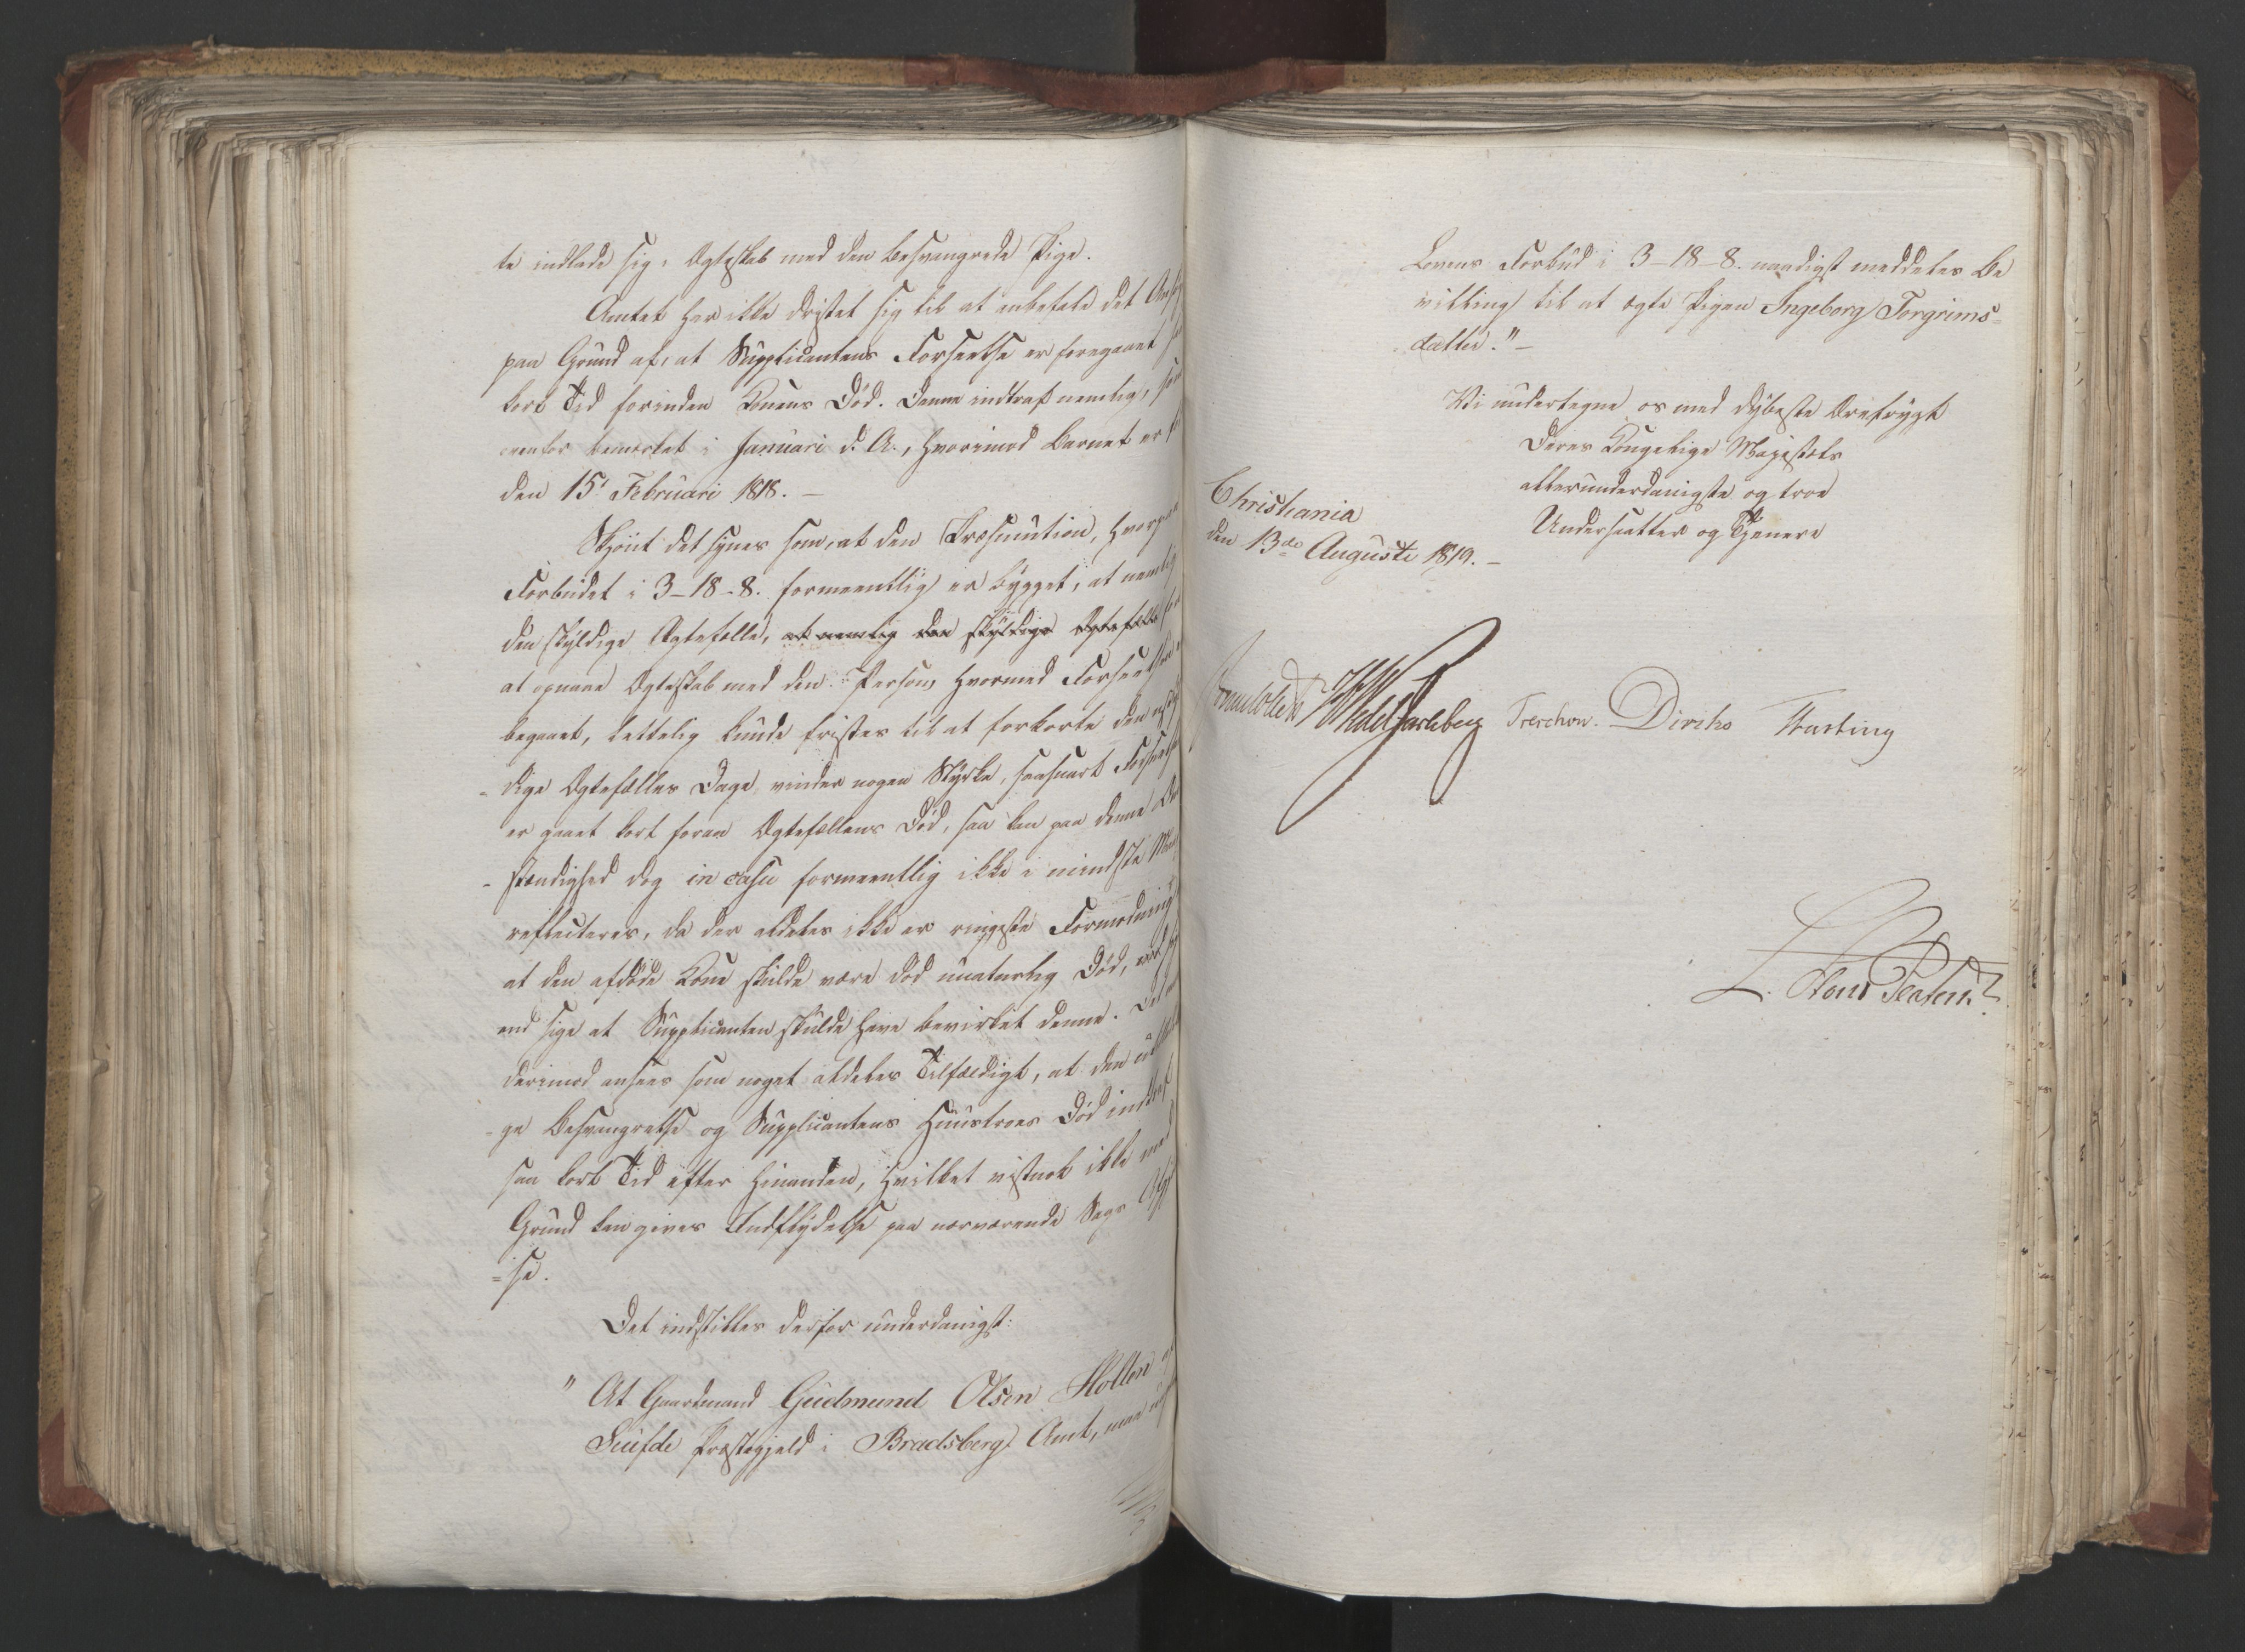 te indlade sig i Ægteskab med den besvangrede Pige.
Amtet har ikke dristet sig til at anbefale det
paa Grund af, at Supplicantens Forseelse er foregaaet
kort Tid forinden Konens Død. Denne indtraf nemlig, som
ovenfor bemærket i Januari d. A., hvorimod Barnet er
den 15. Februari 1818. –
Skjönt det synes som, at den Præsumtion, hvorpaa
Forbudet i 3–18–8. formeentlig er bygget, at nemlig
den skyldige Ægtefælle, at nemlig den skyldige Ægtefælle for
at opnaae Ægteskab med den Person, hvormed Forseelsen
begaaet, lettelig kunde fristes til at forkorte den uskyl
dige Ægtefælles Dage, vinder nogen Styrke, saasnart Forseelsen
er gaaet kort foran Ægtefællens Død, saa kan paa denne Om
-stændighed dog in casu formeentlig ikke i mindste
reflecteres, da der aldeles ikke er ringeste Formodning
at den afdöde Kone skulde være død unaturlig Død,
end sige at Supplicanten skulde have bevirket denne. Det
derimod ansees som noget aldeles Tilfældigt, at den
-ge Besvangrelse og Supplicantens Huustroes Död indtraf
saa kort Tid efter hinanden, hvilket vistnok ikke med
Grund kan gives Indflydelse paa nærværende Sags
=se.
Det indstilles derfor underdanigst:
" At Gaardmand Gudmund Olsen Holte af
Seufde Præstegjeld i Bradsberg Amt, maa
Lovens Forbud i 3–18–8. naadigst meddeles Be
villing til at ægte Pigen Ingeborg Torgrims=
datter." –
Vi undertegne os med dybeste Ærefrygt
Deres Kongelige Majestæts
allerunderdanigste og troe
Undersaatter og Tjenere
Christiania
den 13de Augusti 1819. –
Sommerhielm HWedelJarlsberg Treschow. Diriks Fasting